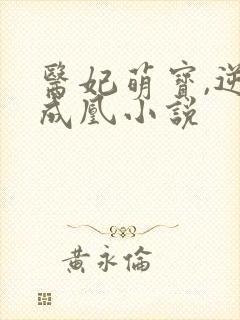 醫妃萌寶,逆
成凰小說
黃永倫